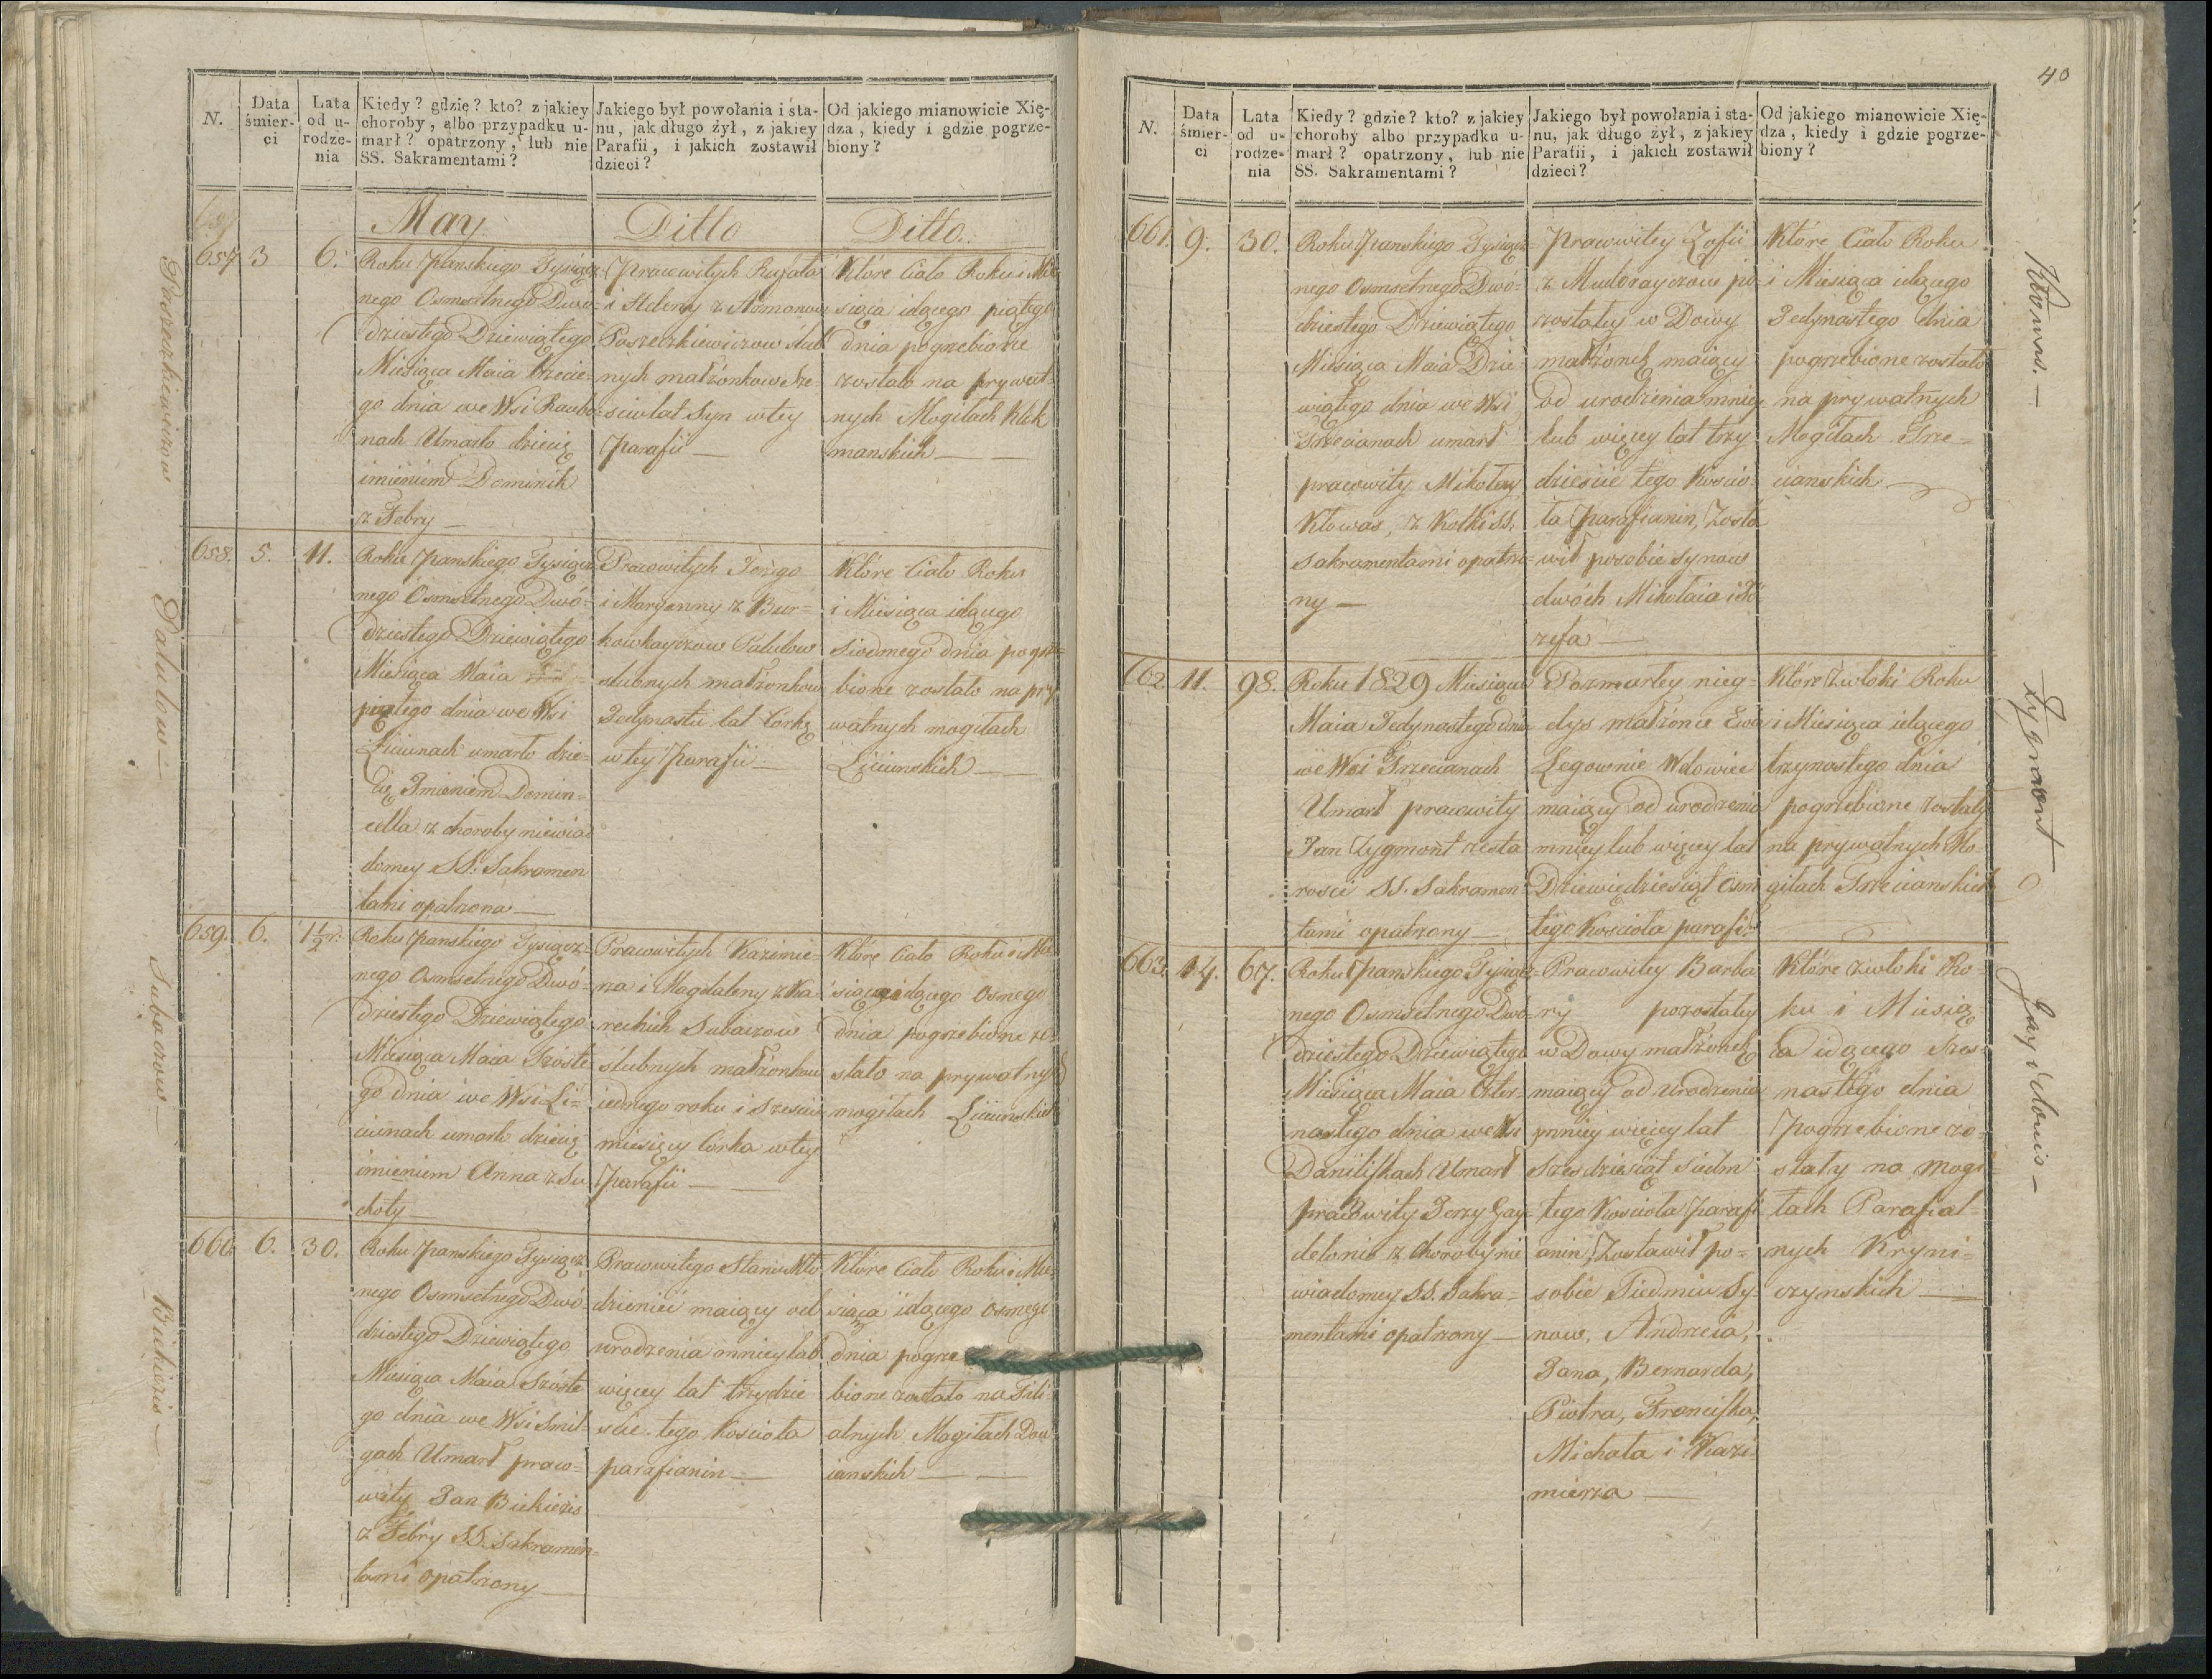 N.
Data śmier-
ci
Lata
od u-
rodze-
nia
Kiedy? gdzie? kto? z jakiey
choroby, albo przypadku u-
marł? opatrzony, lub nie
SS. Sakramentami?
Jakiego był powołania i sta-
nu, jak długo żył, z jakiey
Parafii, i jakich zostawił
dzieci?
Od jakiego mianowicie Xię-
dza, kiedy i gdzie pogrze-
biony?
May
Ditto
Ditto.
657
3
6.
Roku Panskiego Tysiącz-
nego Osmsetnego Dwó-
dziestego Dziewiątego
Miesiąca Maia trzecie-
go dnia we Wsi
nach Umarło dziecię
imieniem Dominik
z Febry —
Pracowitych Rafała
i Heleny z
ślub
nych małżonkow Sze-
sciu lat Syn w tey
Parafii —
Które Ciało Roku i Mie
siąca idącego piątego
dnia pogrzebione
zostało na prywat-
nych Mogiłach
manskich —
658.
5.
11.
Roku Panskiego Tysiącz
nego Osmsetnego Dwó-
dziestego Dziewiątego
Miesiąca Maia
piątego dnia we Wsi
Liciunach umarło dzie-
cię Imieniem Domin-
cella z choroby niewia
domey SS. Sakramen
tami opatrzona —
Pracowitych Jerzego
i Maryanny z Bur-
Palulow
slubnych małżonkow
Jedynastu lat Córkę
w tey Parafii —
Które Ciało Roku
i Miesiąca idącego
Siodmego dnia pogrze-
bione zostało na pry
watnych mogiłach
Liciunskich —
659.
6.
1½ r.
Roku Panskiego Tysiącz
nego Osmsetnego Dwó-
dziestego Dziewiątego
Miesiąca Maia Szoste
go dnia we Wsi Li-
ciunach umarło dziecię
imieniem Anna z Su
choty
Pracowitych Kazimie-
rza i Magdaleny z Ka-
reckich Subaczow
ślubnych małżonkow
jednego roku i szesciu
miesięcy Córka w tey
Parafii —
Które Ciało Roku i Mie
siąca idącego Osmego
dnia pogrzebione zo-
stało na prywatnych
mogiłach Liciunskich
660
6.
30.
Roku Panskiego Tysiącz
nego Osmsetnego Dwó
dziestego Dziewiątego
Miesiąca Maia Szóste
go dnia we Wsi Smil-
gach Umarł praco-
wity Jan Bickieris
z Febry SS. Sakramen-
tami opatrzony —
Pracowitego Stanu Mło
dzieniec maiący od
urodzenia mniey lub
więcey lat trzydzie
scie tego kościoła
parafianin —
Które Ciało Roku i Mie
siąca idącego osmego
dnia pogrze
bione zostało na Fili
alnych Mogiłach
ianskich —
Palulow —
Subaczow —
Bickieris —
40
N.
Data śmier-
ci
Lata
od u-
rodze-
nia
Kiedy? gdzie? kto? z jakiey
choroby albo przypadku u-
marł? opatrzony, lub nie
SS. Sakramentami?
Jakiego był powołania i sta-
nu, jak długo żył, z jakiey
Parafii, i jakich zostawił
dzieci?
Od jakiego mianowicie Xię-
dza, kiedy i gdzie pogrze-
biony?
661.
9.
30.
Roku Panskiego Tysiącz-
nego Osmsetnego Dwó-
dziestego Dziewiątego
Miesiąca Maia Dzie-
wiątego dnia we Wsi
Trzecianach umarł
pracowity Mikołay
Kłowas, z Kolki SS.
Sakramentami opatrzo-
ny —
Pracowitey Zofii
z po-
zostałey w Dowy
małżonek maiący
Od urodzenia mniey
lub więcey lat trzy
dzieście tego Koscio
ła Parafianin, Zosta
wił po sobie synow
dwóch Mikołaia i Jó
zefa —
Które Ciało Roku
i Miesiąca idącego
Jedynastego dnia
pogrzebione zostało
na prywatnych
Mogiłach Trze-
cianskich —
662
11.
98.
Roku 1829 Miesiąca
Maia Jedynastego dnia
we Wsi Trzecianach
Umarł pracowity
Jan Zygmont z sta
rosci SS. Sakramen-
tami opatrzony —
Pozmarłey nieg-
dys małżonce Ewie
Legownie Wdowiec
maiący od urodzenia
mniey lub więcey lat
Dziewiędziesiąt Osm
tego Kościoła parafi.
Które zwłoki Roku
i Miesiąca idącego
trzynastego dnia
pogrzebione zostały
na prywatnych Mo-
giłach Trzecianskich
663
14.
67.
Roku Panskiego Tysiącz-
nego Osmsetnego Dwó-
dziestego Dziewiątego
Miesiąca Maia Czter-
nastego dnia we Wsi
Daniliszkach Umarł
pracowity Jerzy Gay-
delonis z Choroby nie
wiadomey SS. Sakra-
mentami opatrzony —
Pracowitey Barba
ry pozostałey
w Dowy małżonek
maiący od urodzenia
mniey wiecey lat
Szesdziesiąt Siedm
tego Kosciola Parafi
anin, Zostawił po-
sobie Siedmiu Sy-
now, Andrzeia,
Jana, Bernarda,
Piotra, Franciszka,
Michała i Kazi-
mierza —
Które zwłoki Ro-
ku i Miesią
ca idącego Szes-
nastego dnia
Pogrzebione zo-
stały na Mogi
łach Parafial-
nych Kryni-
czynskich —
Kłowas. —
Zygmont
Gaydelonis —